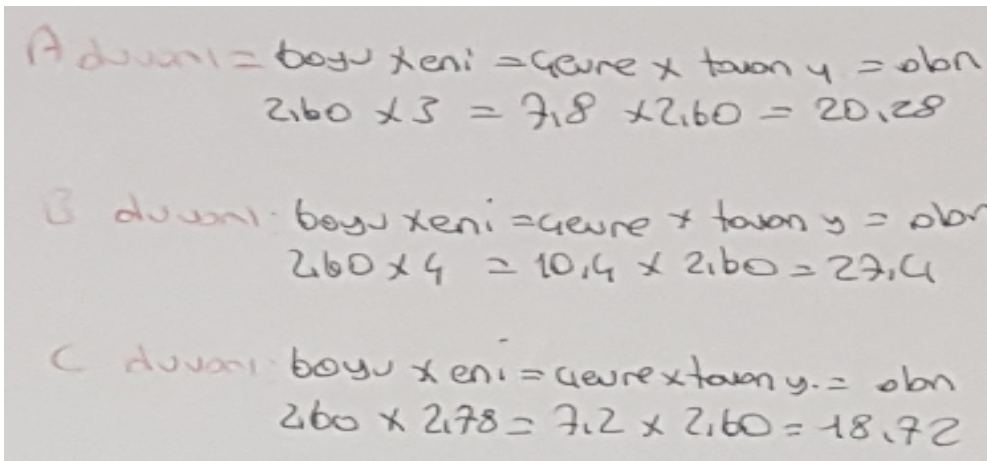 A duvarı = boyu x eni = çevre x tavan y = alan
2,60 x 3 = 7,8 x 2,60 = 20,28
B duvarı: boyu x eni = çevre x tavan y = alan
2,60 x 4 = 10,4 x 2,60 = 27,4
C duvarı: boyu x eni = çevre x tavan y. = alan
2,60 x 2,78 = 7.2 x 2,60 = 18,72